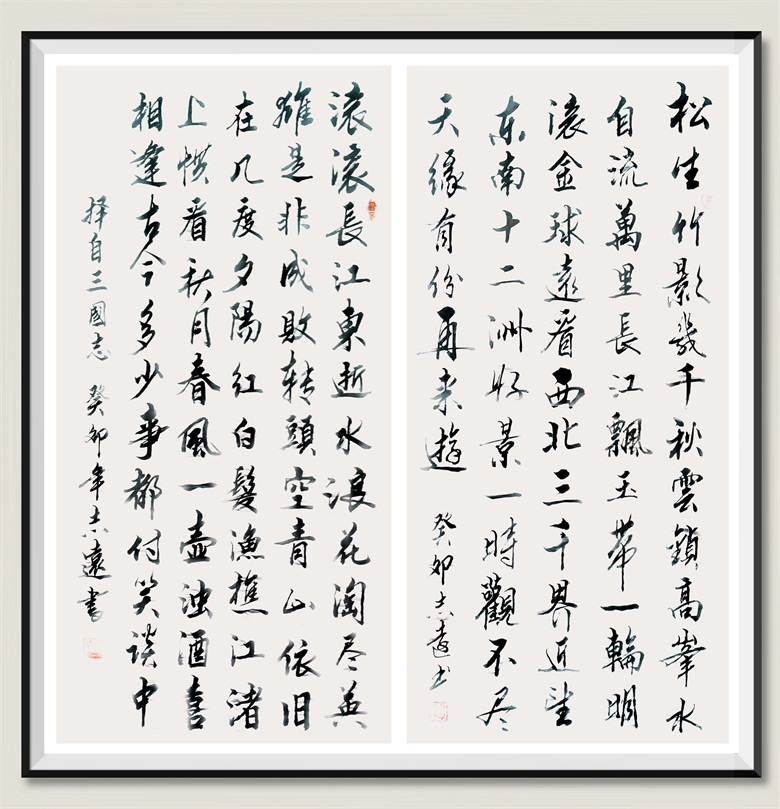 松生竹影幾千秋雲鎖高峯水
自流萬里長江飄玉带一輪明
滚金球遠看西北三千界近望
东南十二洲好景一時觀不尽
天缘有份再来遊
癸卯志遠书
滚滚長江東逝水浪花淘尽英
雄是非成敗转頭空青山依旧
在几度夕陽红白髮漁樵江渚
上惯看秋月春風一壶浊酒喜
相逢古今多少事都付笑談中
择自三國志 癸卯年志遠書